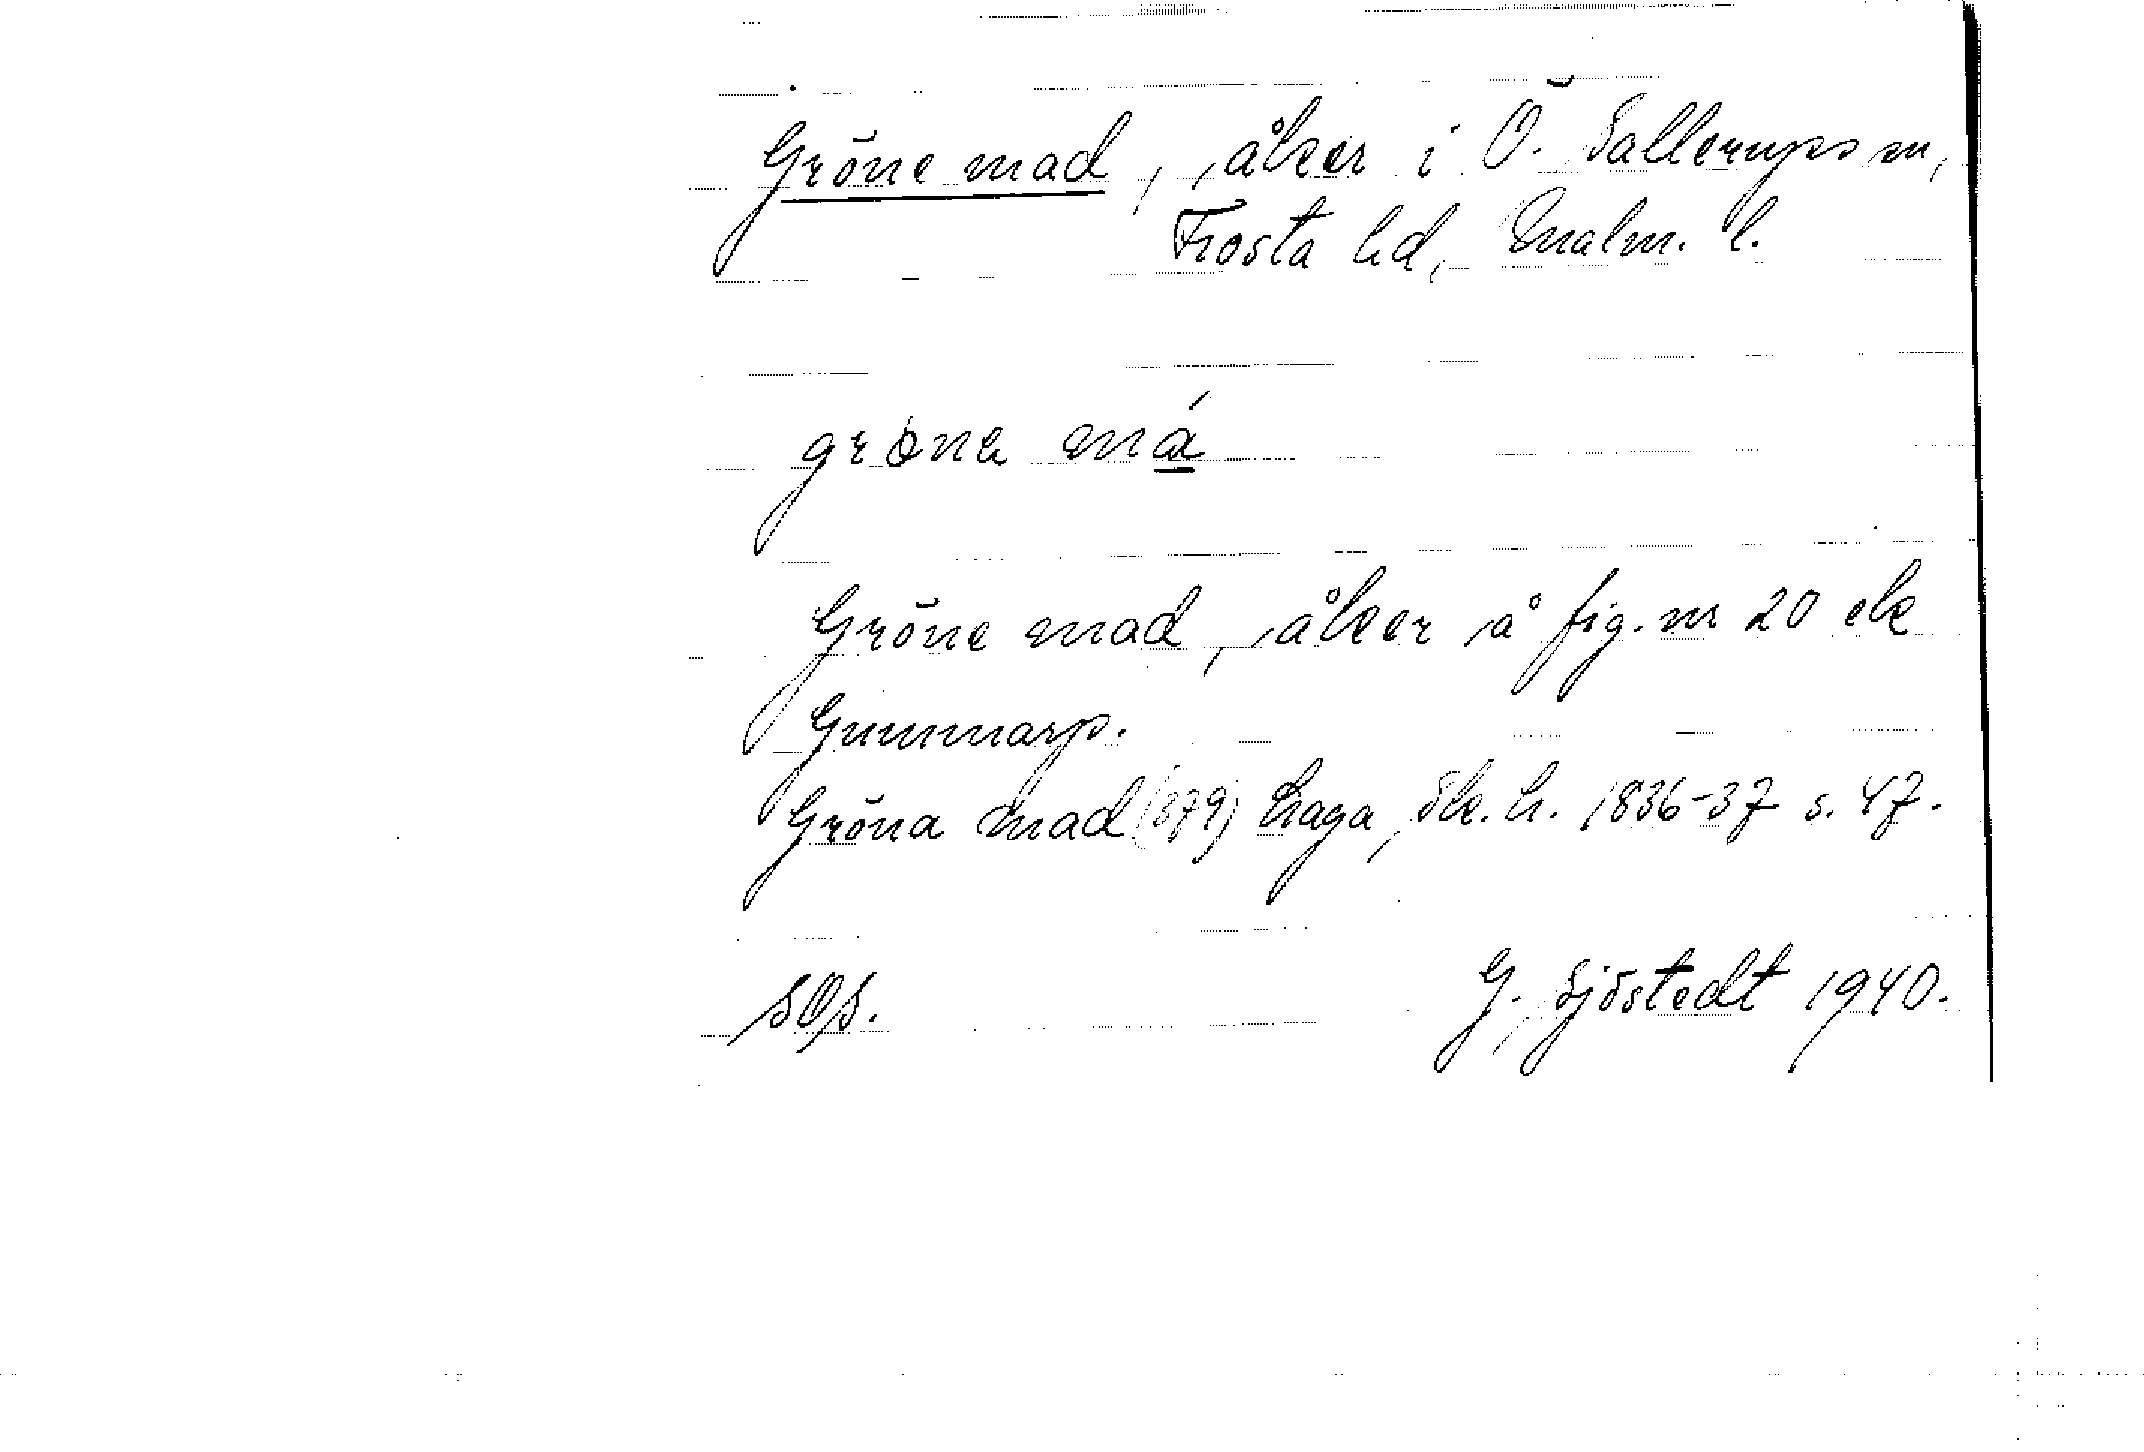 Gröne mad, åker i Ö. Sallerups sn,
Frosta hd, Malm. l.
gröna má
Gröne mad, åker å fig. nr 20 ek
Gummarp.
Gröna Mad (379) Haga, sk. h. 1836-37 s. 47.
SOs. G. Sjöstedt 1940.